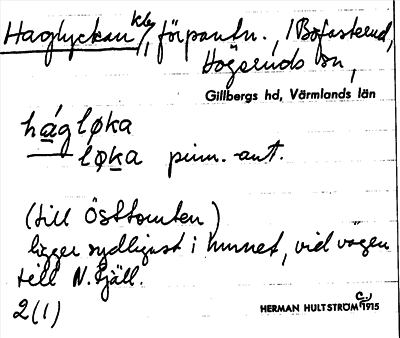 Haglyckan kly, förpantn., i Bofasterud,
Högseruds sn,
Gillbergs hd, Värmlands län
hágløka
løka pron. ant.
(till Östtomten)
ligger sydligast i hmnet, vid vägen
till N. Fjäll.
2(1)
HERMAN HULTSTRÖM C. 1915